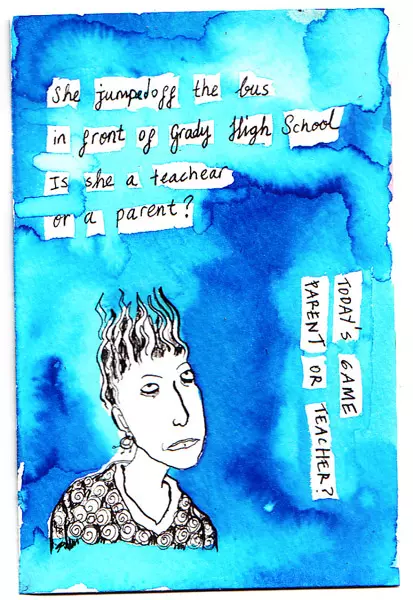 She jumped off the bus
in front of Grady High School
Is she a teachear
or a parent?
TODAY'S GAME
PARENT OR TEACHER?